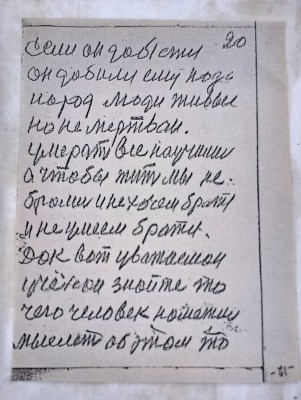 20
если он добыти
он добили ему пода
народ люди живые
но не мертваи.
умерат все научили
а чтобы жит мы не
брали и не хочем брат
и не умеем брати.
Док вот уважаемои
учёнои знайте то
чего человек на
мыслет об этом то
-21-